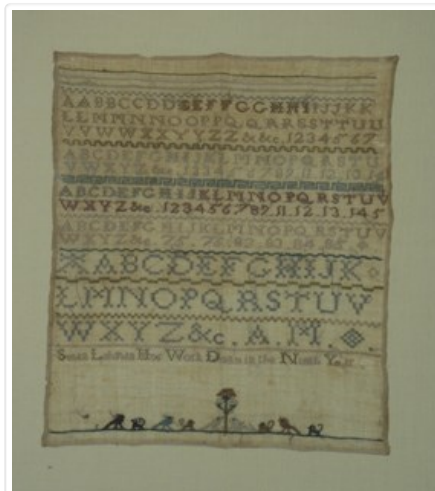 AABBCCDDEEFFGGHHIIJJKK
LLMMNNOOPPQQRRSSTTUU
VVWWXXYYZZ&c 1234567
ABCDEFGHIJKLMNOPQRSTU
ABCDEFGHIJKLMNOPQRSTUV
WXYZ&c. 123456789.11.12.13.145
ABCDEFGHIJKLMNOPQRSTUV
WXYZ&c.
ABCDEFGHIJK
LMNOPQRSTUV
WXYZ&c. A. M.
Her Work Done in the Ninth Year